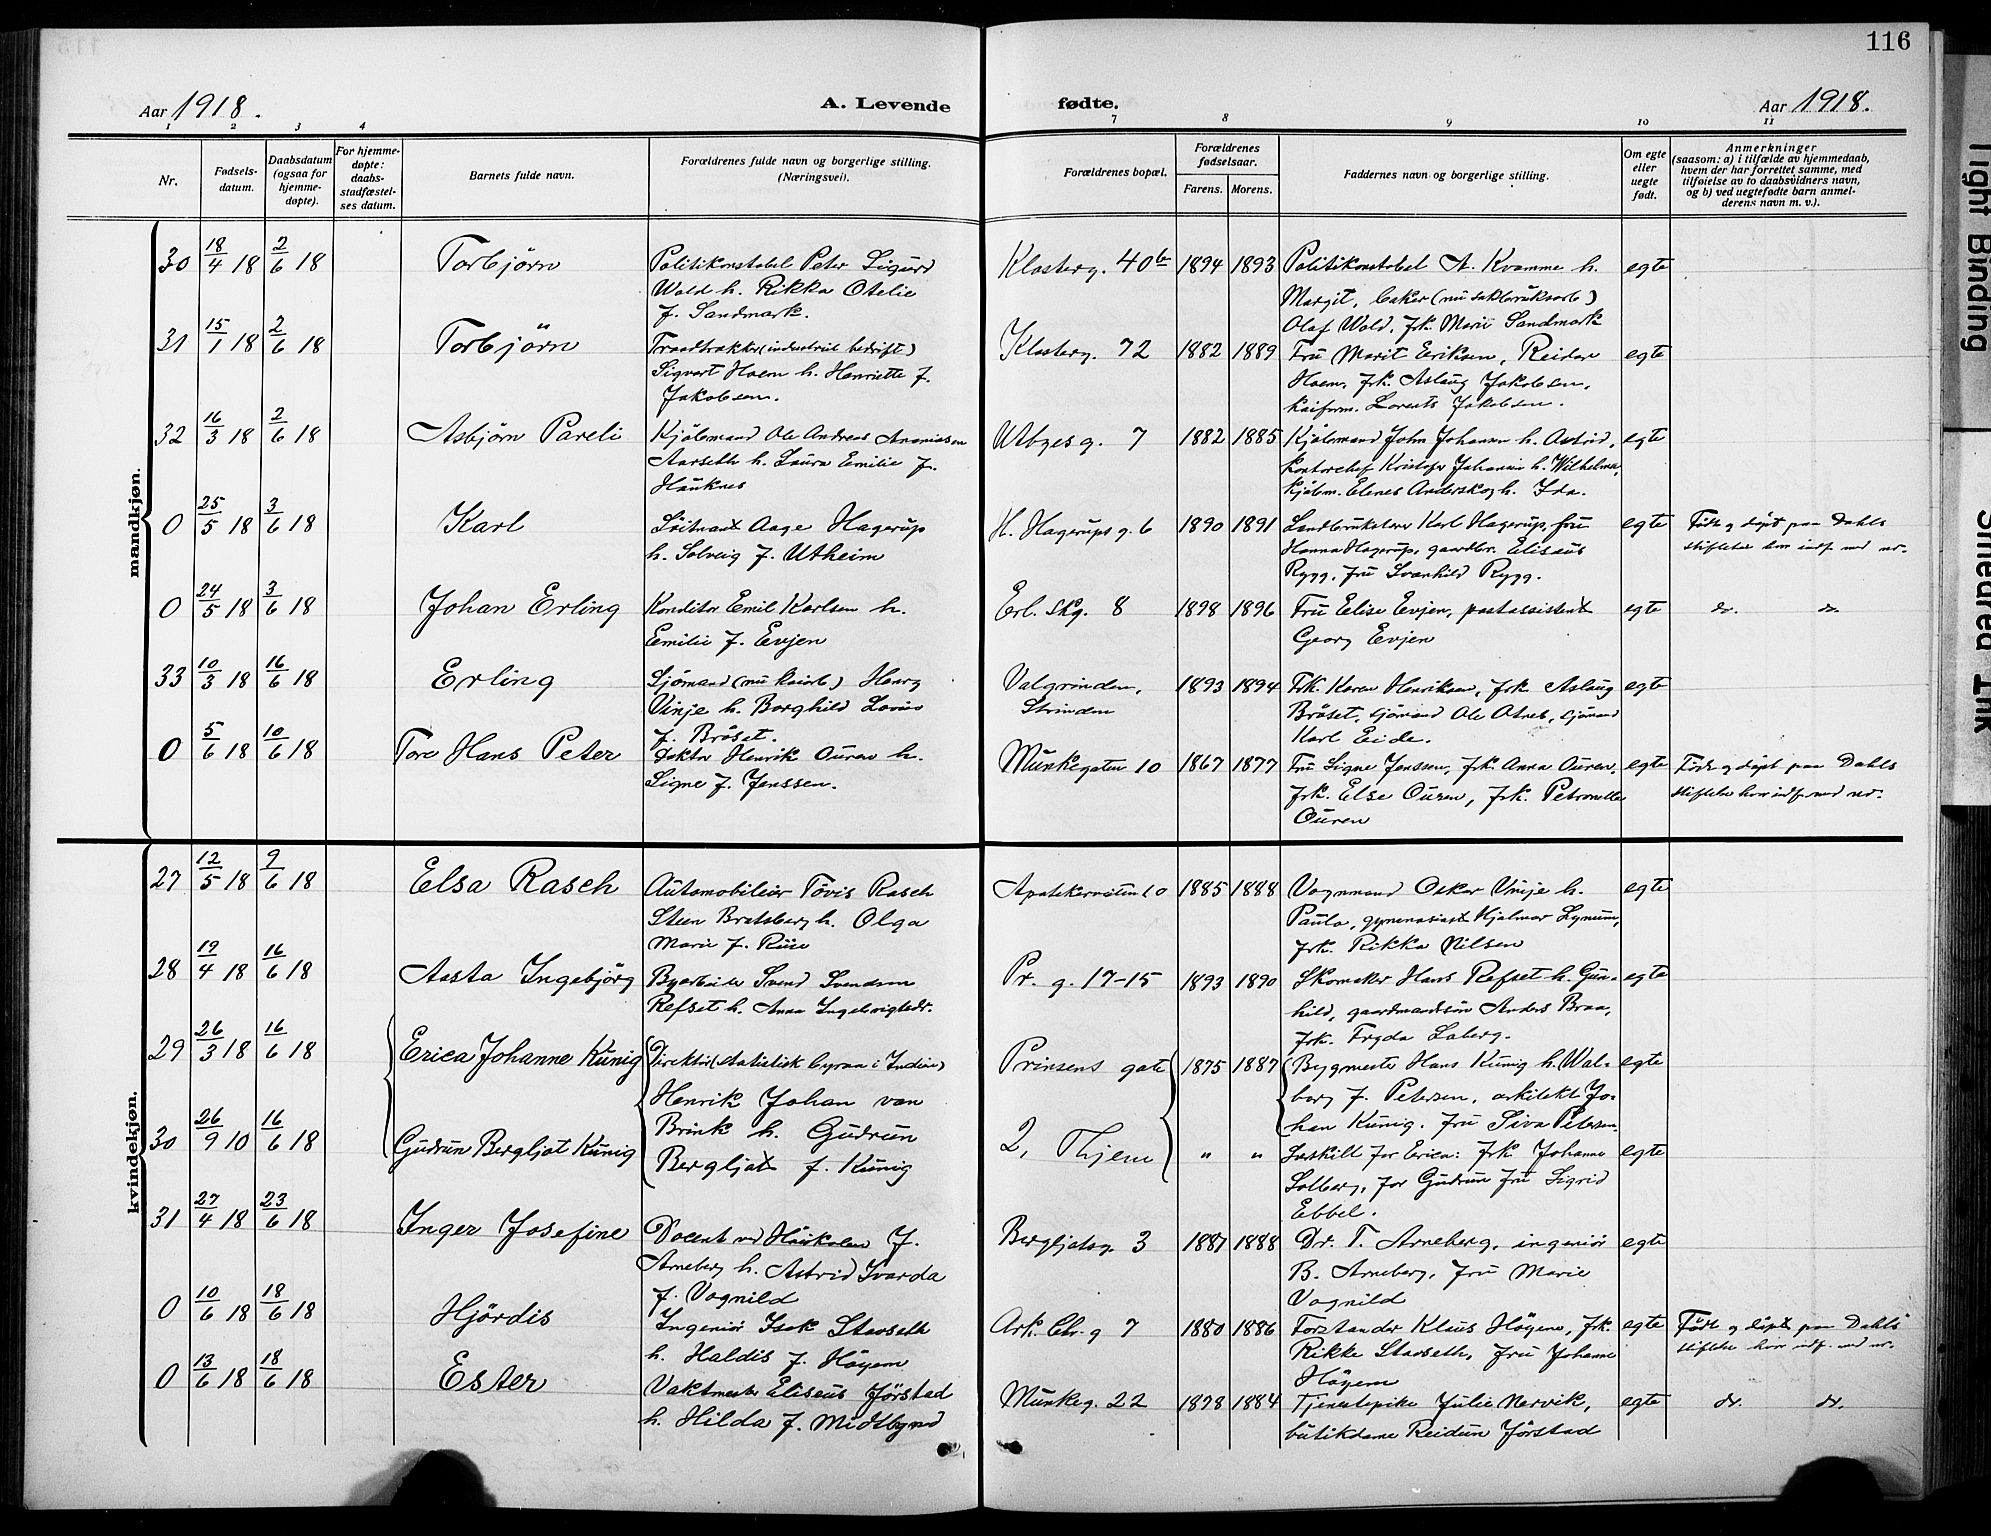 116
Aar 1918.
A. Levende fødte.
Aar 1918.
1 2 3 4 7 8 9 10 11
Nr.
Fødsels-
datum.
Daabsdatum
(ogsaa for
hjemme-
døpte).
For hjemme-
døpte:
daabs-
stadfæstel-
ses datum.
Barnets fulde navn.
Forældrenes fulde navn og borgerlige stilling.
(Næringsvei).
Forældrenes bopæl.
Forældrenes
fødselsaar.
Farens. Morens.
Faddernes navn og borgerlige stilling.
Om egte
eller
uegte
født.
Anmerkninger
(saasom: a) i tilfælde av hjemmedaab,
hvem der har forrettet samme, med
tilføielse av to daabsvidners navn,
og b) ved uegtefødte barn anmel-
derens navn m. v.).
mandkjøn.
30 18/4 18 2/6 18 Torbjörn
Politikonstabel Peter Sigurd
Wold h. Rikka Otelie
f. Sandmark.
Klosterg. 40b 1894 1893
Politikonstabel A. Kvamme h.
Margit, baker (nu sakbruksarb)
Olaf Wold, frk. Marie Sandmark
egte
31 15/1 18 2/6 18 Torbjörn
Traadtrækker (industriel bedrift)
Sigvart Hoem h. Henriette f.
Jakobsen.
Klosterg. 72 1882 1889
Fru Marit Eriksen, Reidar
Hoem, frk. Aslaug Jakobsen,
Lorents Jakobsen.
egte
32 16/3 18 2/6 18 Asbjörn Pareli
Kjöbmand Ole Andreas Ananiassen
Aarseth h. Laura Emilie f.
Hauknes
7 1882 1885
Kjöbmand John Johansen h. Astrid,
kontorchef Kristofer Johansen h. Wilhelma,
kjöbm. Elenes Anderskog h. Ida.
egte
0 25/5 18 3/6 18 Karl
Löitnant Aage Hagerup
h. Solveig f. Utheim
H. Hagerups g. 6 1890 1891
Landbrukslærer Karl Hagerup, fru
Hanna Hagerup, gaardbr. Eliseus
Rygg, fru Svanhild Rygg.
egte
Födt og döpt paa Dahls
stiftelse hvor indf. med nr.
0 24/5 18 3/6 18 Johan Erling
Konditor Emil Karlsen h.
Emilie f. Evjen
Erl. Skg. 8 1898 1896
Fru Elise Evjen, postassistent
Georg Evjen
egte
do. do.
33 10/3 18 16/6 18 Erling
Sjömand (nu kaiarb) Henry
Vinje h. Borghild Lovise
f. Bröset.
Valgrinden,
Strinden
1893 1894
Frk. Karen Henriksen, frk Aslaug
Bröset, sjömand Ole Atneb, sjömand
Karl Eide.
egte
0 5/6 18 10/6 18 Tore Hans Peter
Doktor Henrik Ouren h.
Signe f. Jenssen.
Munkegaten 10 1867 1877
Fru Signe Jenssen, frk. Anna Ouren,
frk. Else Ouren, frk. Petronelle
Ouren
egte
Födt og döpt paa Dahls
stiftelse hvor indf. med nr.
kvindekjøn.
27 12/5 18 9/6 18 Elsa Rasch
Automobileier Tovis Rasch
Steen Bratsberg h. Olga
Marie f. Riise
Apotekerveiten 10 1885 1888
Vognmand Oskar Vinje h.
Paula, gymnasiast Hjalmar Lynum,
frk. Rikka Nilsen
egte
28 19/4 18 16/6 18 Aasta Ingebjörg
Byarbeider Svend Svendsen
Refset h. Anna Ingebrigtsdr.
Pr. g. 17-15 1893 1890
Skomaker Hans Refset h. Gun-
hild, gaardmandssön Anders Braa,
frk. Fryda Saberg.
egte
29 26/3 18 16/6 18 Erica Johanne Künig
30 26/9 10 16/6 18 Gudrun Bergljot Künig
Direktör (statistisk byraa i Indien)
Henrik Johan van
Brink h. Gudrun
Bergljot f. Künig
Prinsens gate
2, Thjem
1875 1887
" "
Bygmester Hans Künig h. Wal-
borg f. Petersen, arkitekt Jo-
han Künig. Fru Siva Petersen.
Særskilt for Erica: frk Johanne
Solberg, for Gudrun Fru Sigrid
Ebbel.
egte
egte
31 27/4 18 23/6 18 Inger Josefine
Docent ved Höiskolen J.
Arneberg h. Astrid Ivarda
f. Vognild
Bergljotsg. 3 1887 1888
Dr. T. Arneberg, ingeniör
B. Arneberg, fru Marie
Vognild
egte
0 10/6 18 18/6 18 Hjördis
Ingeniör Isak Stavseth
h. Haldis f. Höyem
Ark. Chr. g 7 1880 1886
Forstander Klaus Höyem, frk.
Rikke Stavseth, fru Johanne
Höyem
egte
Födt og döpt paa Dahls
stiftelse hvor indf. med nr.
0 13/6 18 18/6 18 Ester
Vaktmester Eliseus Jörstad
h. Hilda f. Midtbynd
Munkeg. 22 1878 1884
Tjenestepike Julie Nervik,
butikdame Reidun Jörstad
egte
do. do.
Tight Binding
Smeared Ink